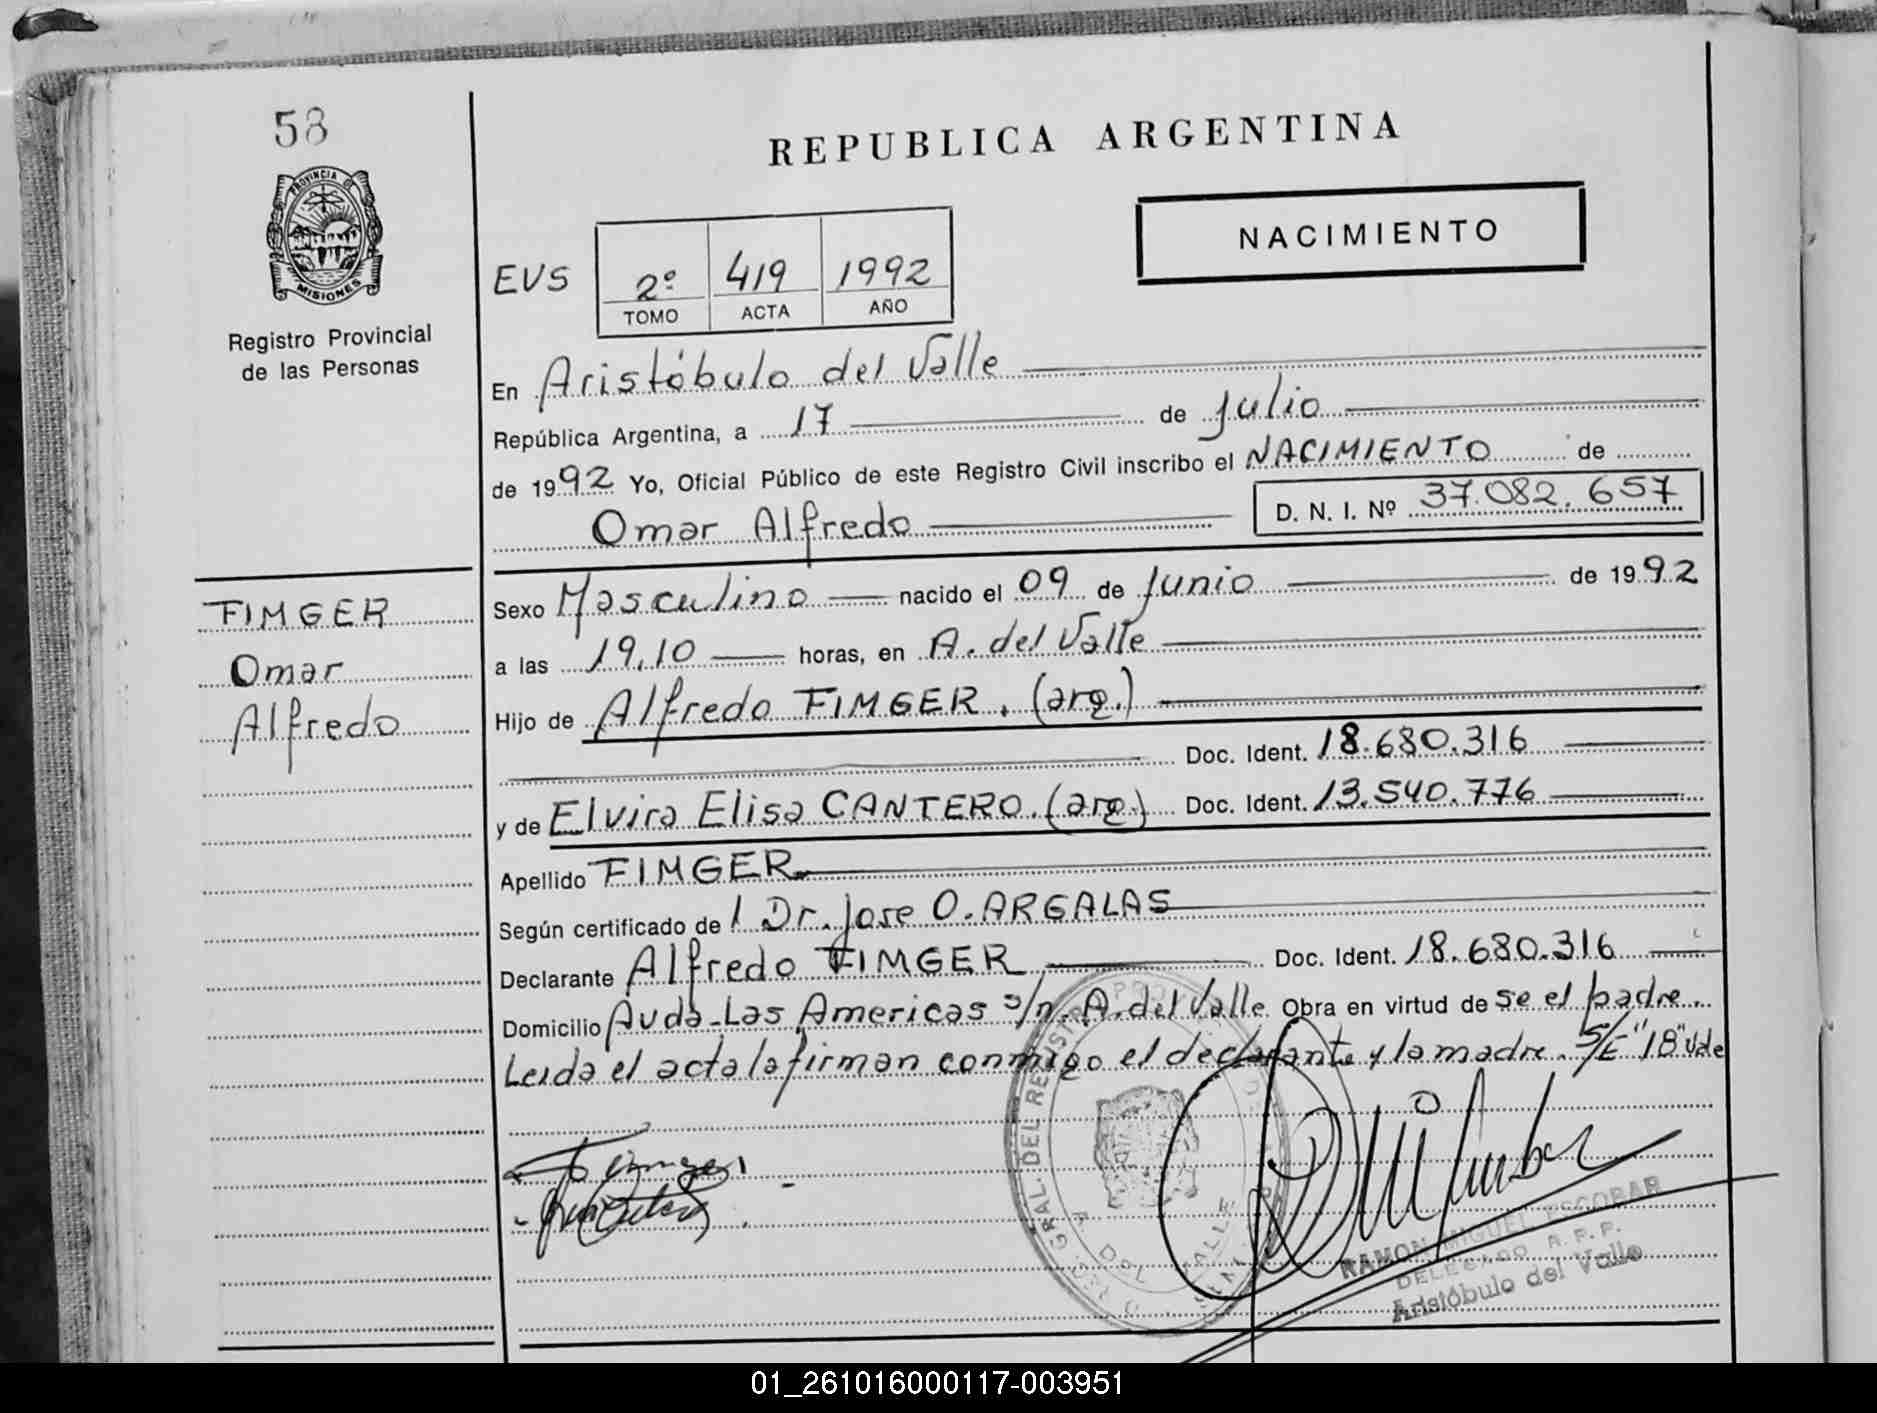 58
PROVINCIA DE
MISIONES
Registro Provincial
de las Personas
REPUBLICA ARGENTINA
NACIMIENTO
EVS
2º 419 1992
TOMO ACTA AÑO
En Aristóbulo del Valle
República Argentina, a 17 de Julio
de 1992 Yo, Oficial Público de este Registro Civil inscribo el NACIMIENTO de
Omar Alfredo D. N. I. Nº 37.082.657
FIMGER
Omar
Alfredo
Sexo Masculino nacido el 09 de Junio de 1992
a las 19,10 horas, en A. del Valle
Hijo de Alfredo FIMGER. (arg.)
Doc. Ident. 18.680.316
y de Elvira Elisa CANTERO. (arg.) Doc. Ident. 13.540.776
Apellido FIMGER
Según certificado de / Dr. Jose O. ARGALAS
Declarante Alfredo FIMGER Doc. Ident. 18.680.316
Domicilio Avda. Las Americas s/n. A. del Valle Obra en virtud de se el padre.
Leida el acta la firman conmigo el declarante y la madre. S/E "18" vale
GRAL. DEL REGISTRO PROV
A. DEL VALLE
RAMON MIGUEL ESCOBAR
DELEGADO R.P.P.
Aristóbulo del Valle
01_261016000117-003951